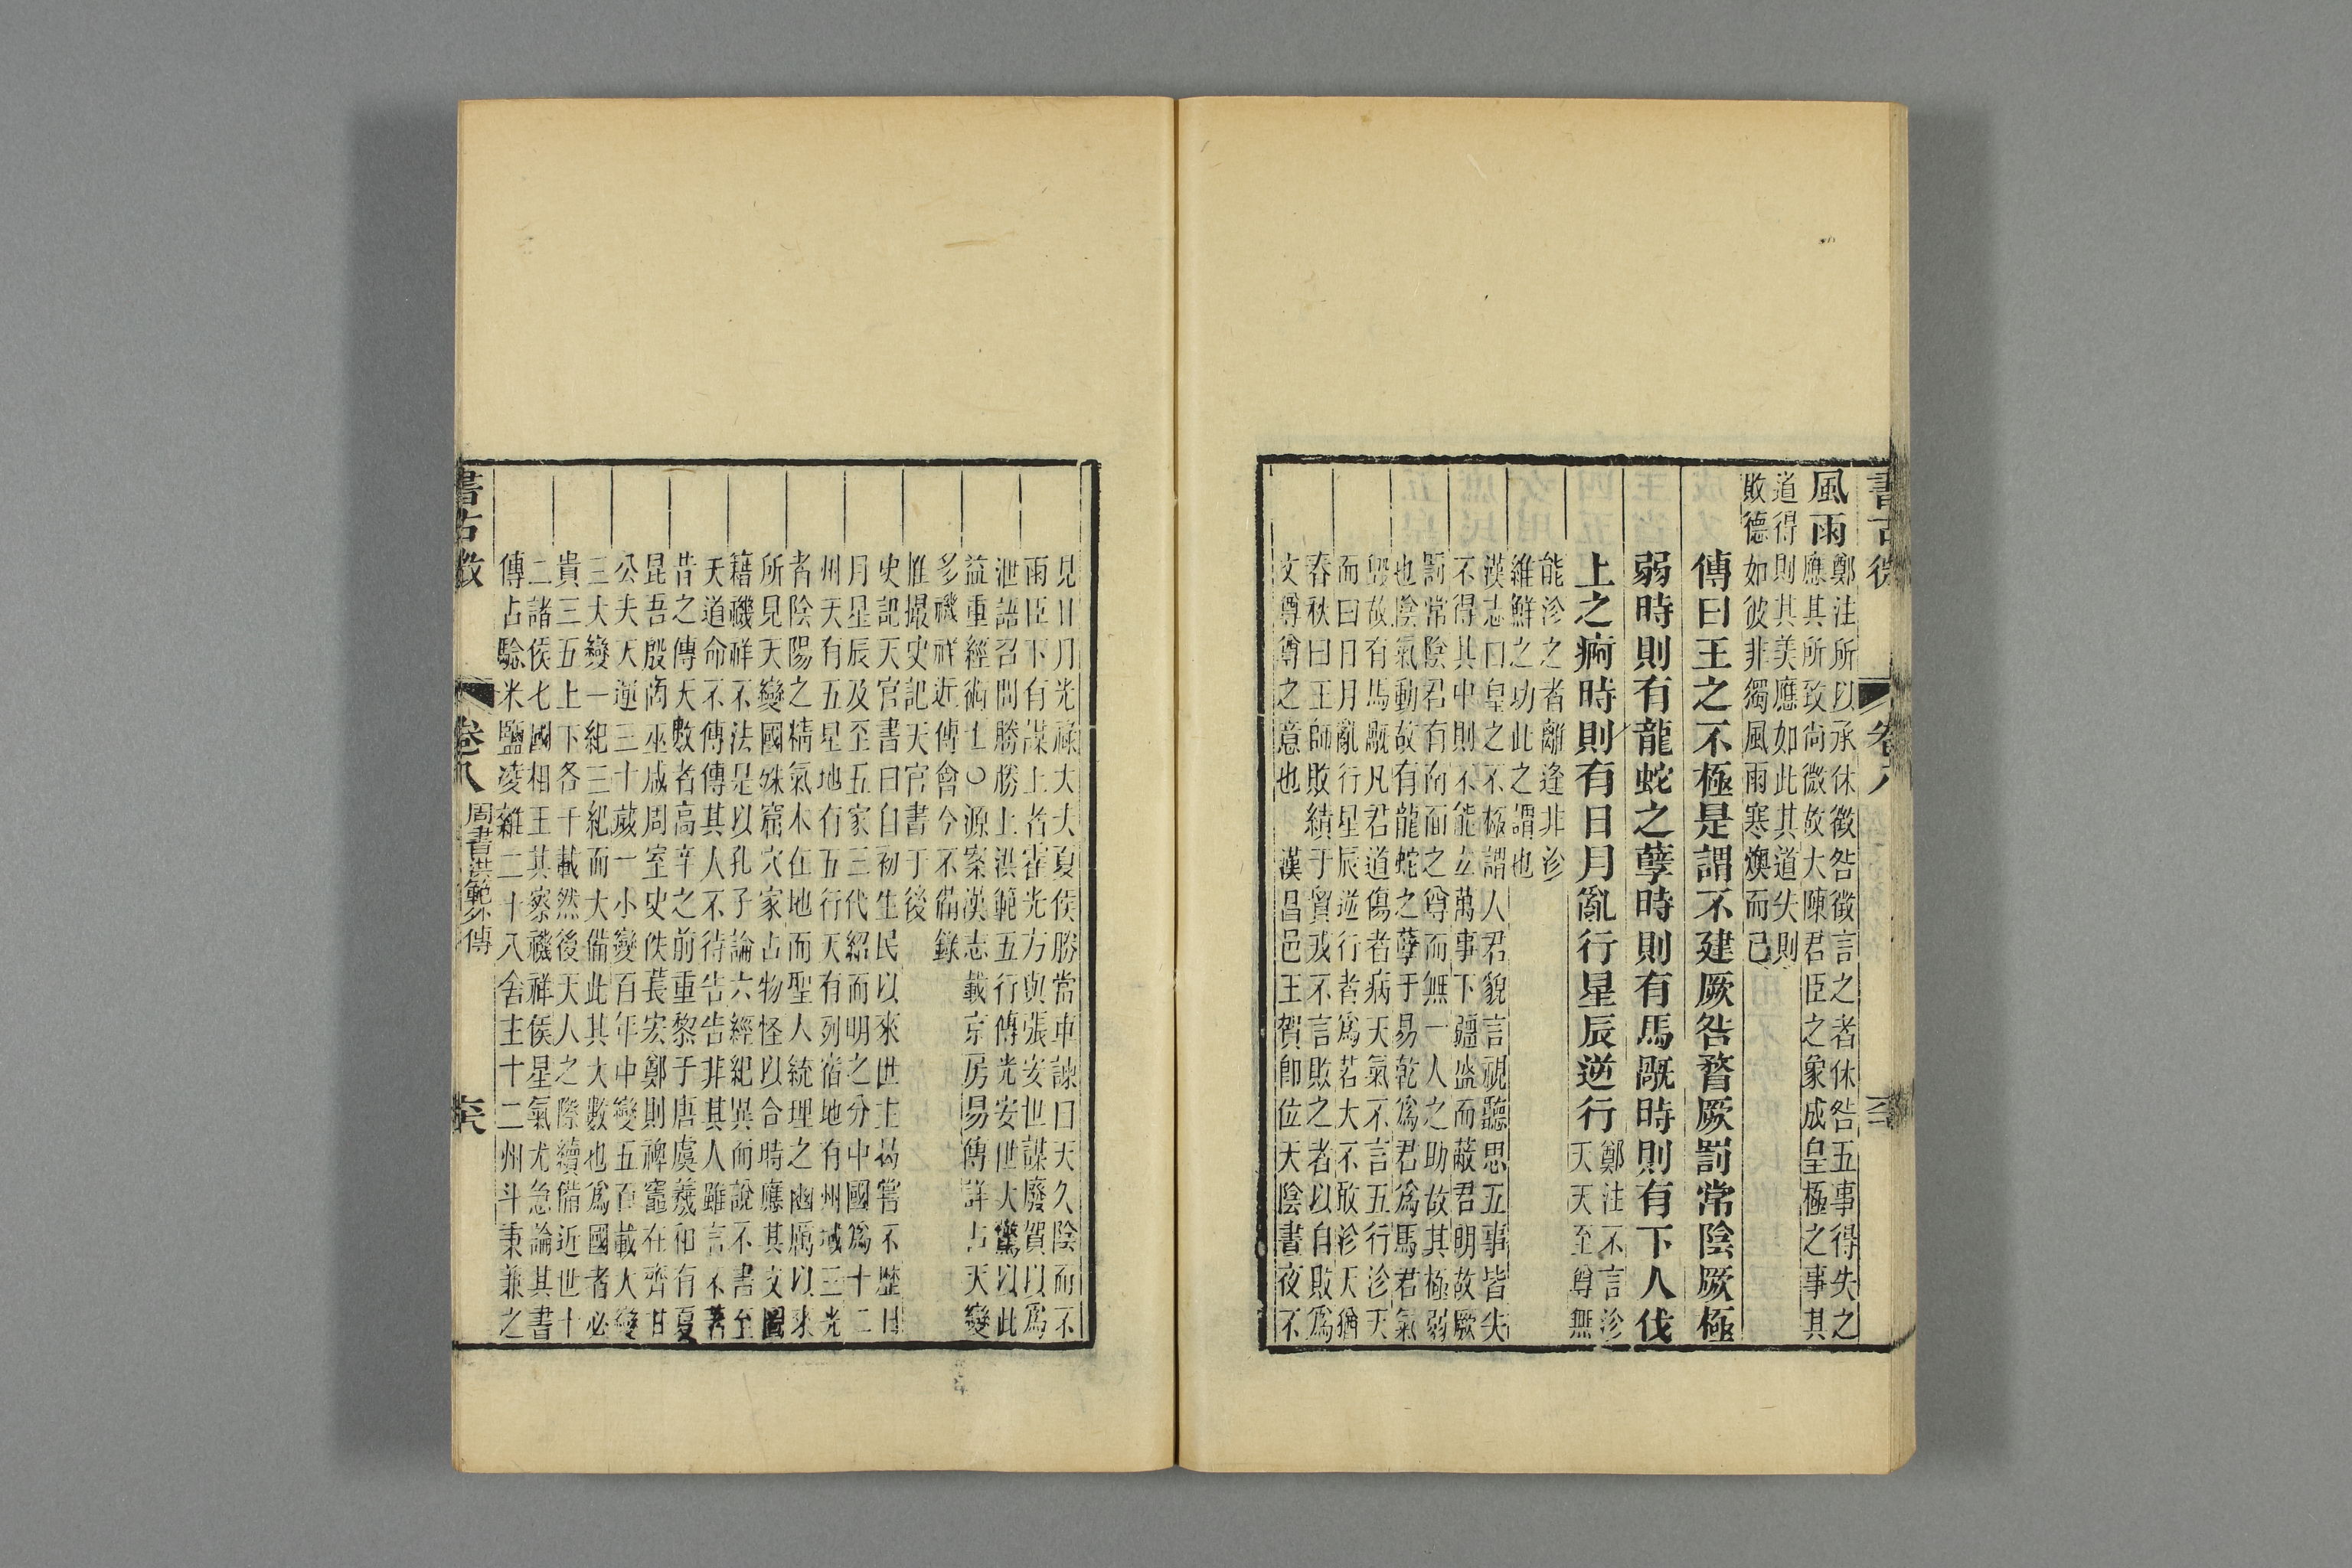 書古微 卷八
風雨
鄭注所以承休徵咎徵言之者休咎五事得失之
應其所致尚微故大陳君臣之象成皇極之事其
道得則其美應如此其道失則
敗德如彼非獨風雨寒燠而已
傳曰王之不極是謂不建厥咎瞀厥罰常陰厥極
弱時則有龍蛇之孽時則有馬旤時則有下人伐
上之痾時則有日月亂行星辰逆行
鄭注不言沴
天天至尊無
能沴之者離逢非沴
維鮮之功此之謂也
漢志曰皇之不極謂人君貌言視聽思五事皆失
不得其中則不能立萬事下彊盛而蔽君明故厥
罰常陰君有南面之尊而無一人之助故其極弱
也陰氣動故有龍蛇之孽于易乾爲君爲馬君氣
毀故有馬旤凡君道傷者病天氣不言五行沴天
而曰日月亂行星辰逆行者爲若大不敢沴天猶
春秋曰王師敗績于貿戎不言敗之者以自敗爲
文尊尊之意也 漢昌邑王賀卽位天陰晝夜不
見日月光祿大夫夏侯勝當車諫曰天久陰而不
雨臣下有謀上者霍光方與張安世謀廢賀以爲
泄語召問勝勝上洪範五行傳光安世大驚以此
益重經術士○源案漢志載京房易傳詳占天變
多禨祥近傅會今不備錄
惟撮史記天官書于後
史記天官書曰自初生民以來世主曷嘗不歷日
月星辰及至五家三代紹而明之分中國爲十二
州天有五星地有五行天有列宿地有州域三光
者陰陽之精氣本在地而聖人統理之幽厲以來
所見天變國殊窟穴家占物怪以合時應其文圖
籍禨祥不法是以孔子論六經紀異而說不書至
天道命不傳傳其人不待告告非其人雖言不著
昔之傳天數者高辛之前重黎于唐虞羲和有夏
昆吾殷商巫咸周室史佚萇宏鄭則裨竈在齊甘
公夫天運三十歲一小變百年中變五百載大變
三大變一紀三紀而大備此其大數也爲國者必
貴三五上下各千載然後天人之際續備近世十
二諸侯七國相王其察禨祥侯星氣尤急論其書
傳占驗米鹽凌雜二十八舍主十二州斗秉兼之
書古微 卷八 周書洪範外傳